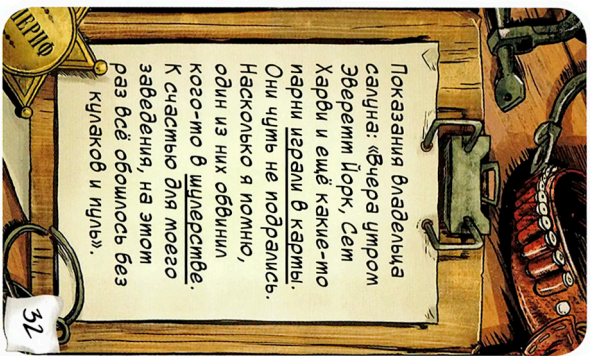 ШЕРИФ
Показания владельца
салуна: «Вчера утром
Эверетт Йорк, Сет
Харви и ещё какие-то
парни играли в карты.
Они чуть не подрались.
Насколько я помню,
один из них обвинил
кого-то в шулерстве.
К счастью для моего
заведения, на этот
раз всё обошлось без
кулаков и пуль».
32